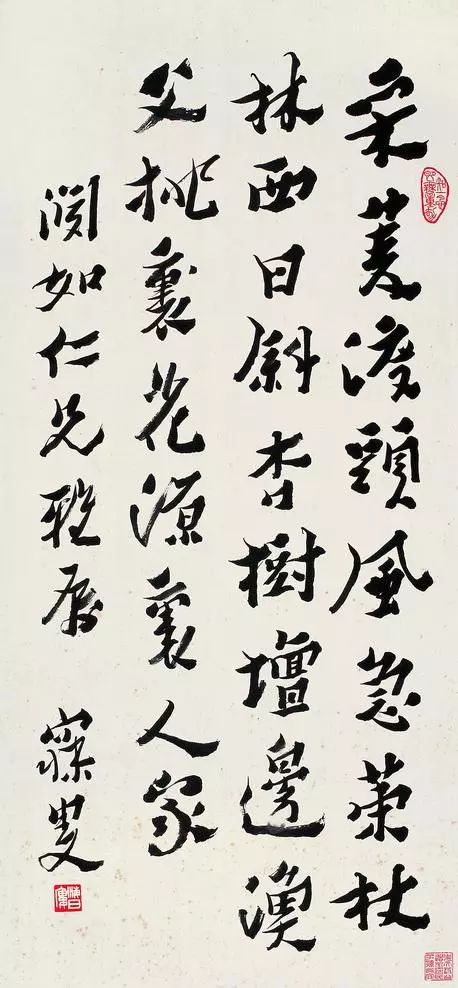 采菱渡頭風急策杖
林西日斜杏樹壇邊漁
父桃裏花源裏人家
如仁兄雅属 寐叟